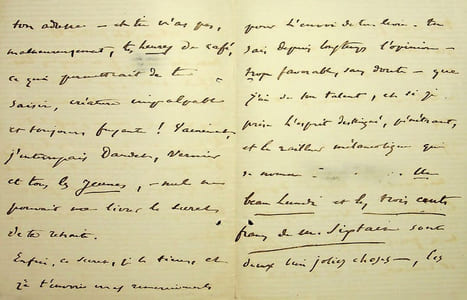 ton adresse – et tu n'as pas,
malheureusement, tes heures de café,
ce qui permettrait de te
saisir, créature impalpable
et toujours fuyant ! Vainement,
j'interrogeais Daudet,
et tous les jeunes, – nul ne
pouvait me livrer le secret
de ta retraite.
Enfin, ce secret, je le tiens, et
je t'envoie mes remerciements
pour l'envoi de ton livre. Tu
sais depuis longtemps l'opinion –
trop favorable, sans doute – que
j'ai de ton talent, et si je
prise l'esprit distingué, pénétrant,
et le railleur mélancolique qui
se nomme Un
beau lundi et les trois cents
francs de M. sont
deux bien jolies choses –, les